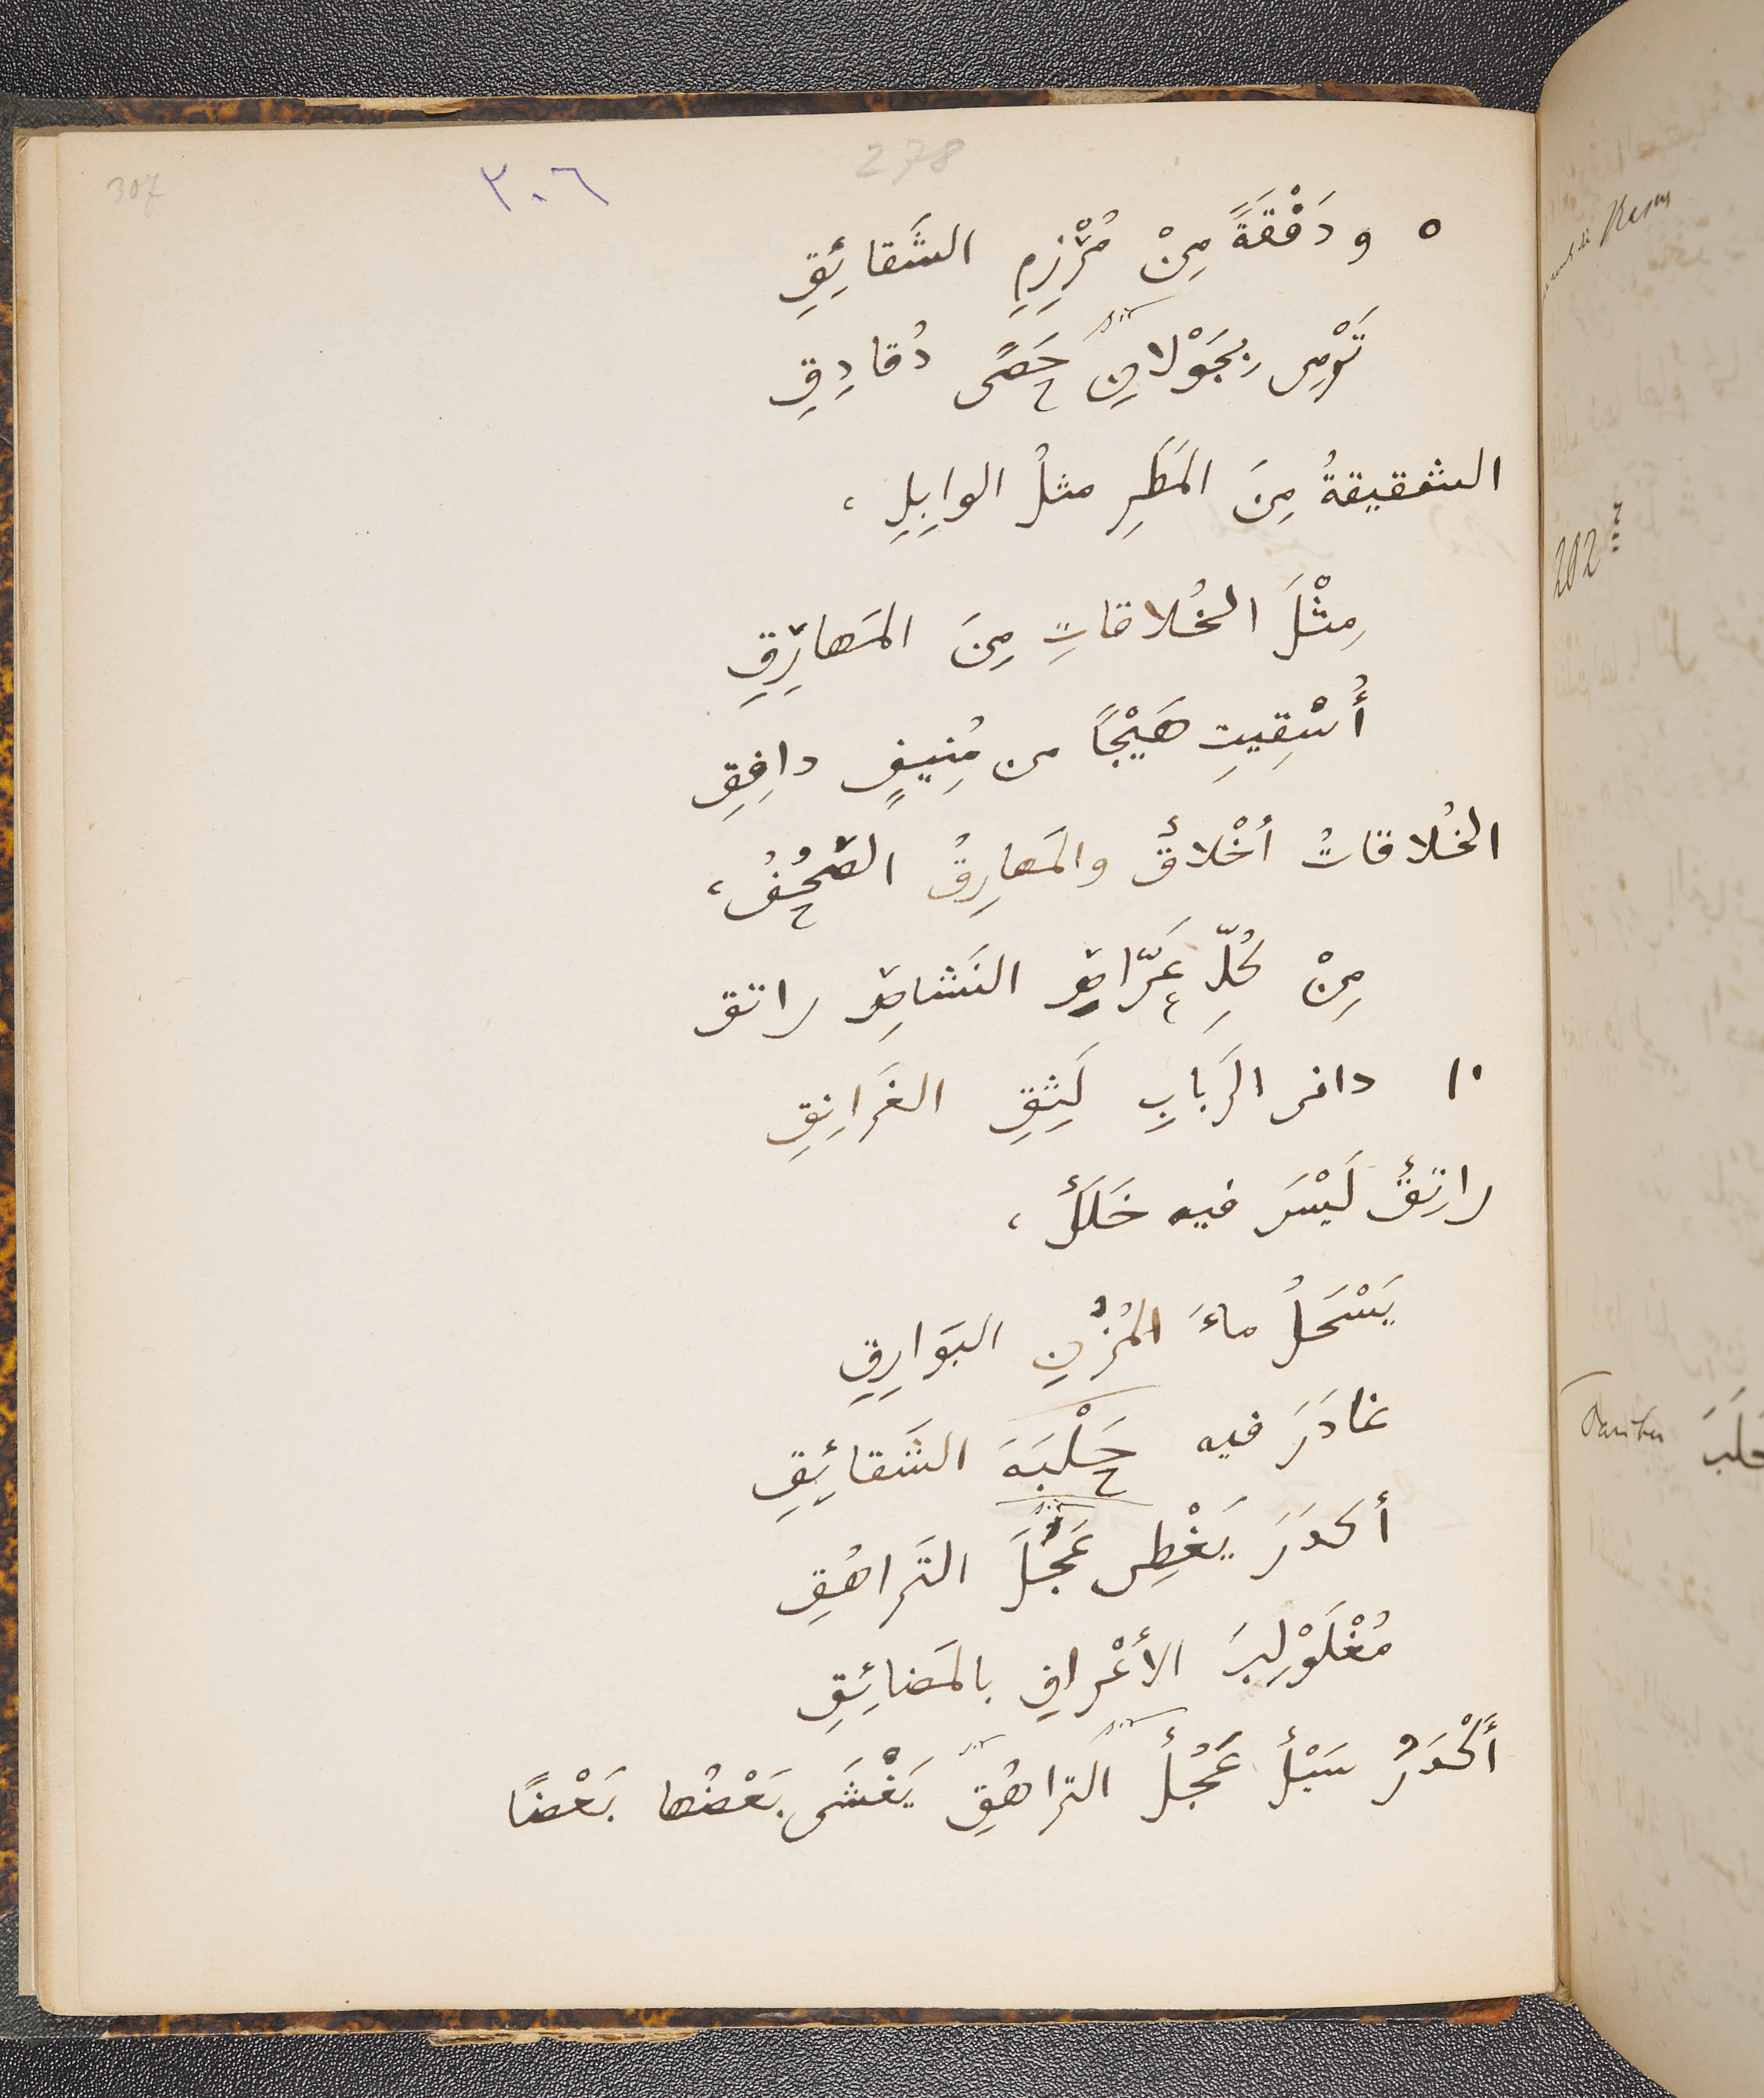 307 ٣٠٦ 278
٥ ودَفْقَةً مِنْ مُرْزِمِ الشَقائِقِ
تَرْمِى بِجَوْلانِ حَصًى دُقادِقِ
الشقيقةُ مِنَ المَطَرِ مثلُ الوابِلِ ،
مِثْلَ الخُلاقاتِ مِنَ المَهارِقِ
أُسْقِيتِ هَيْجًا من مُنِيفٍ دافِقِ
الخُلاقاتُ أخْلاقٌ والمَهارِقُ الصُحُفُ ،
مِنْ كُلِّ عَرّاصِ النَشاصِ راتق
١٠ دانى الرَبابِ لَثِقِ الغَرانِقِ
راتِقٌ لَيْسَ فيه خَلَلٌ ،
يَسْحَلُ ماءَ المُزْنِ البَوارِقِ
غادَرَ فيه حَلْبَةَ الشَقائِقِ
أكدَرَ يَغْطِى عَجُلَ التَراهُقِ
مُغْلَوْلِبَ الأعْرافِ بالمَضائِقِ
أَكْدَرُ سَيْلٌ عَجُلٌ التراهُقِ يَغْشَى بَعْضُها بَعْضًا
202